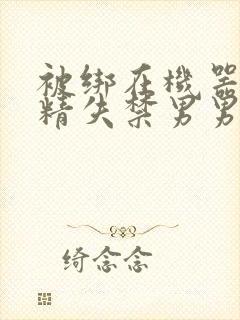 被绑在機器
精失禁男男
绮念念